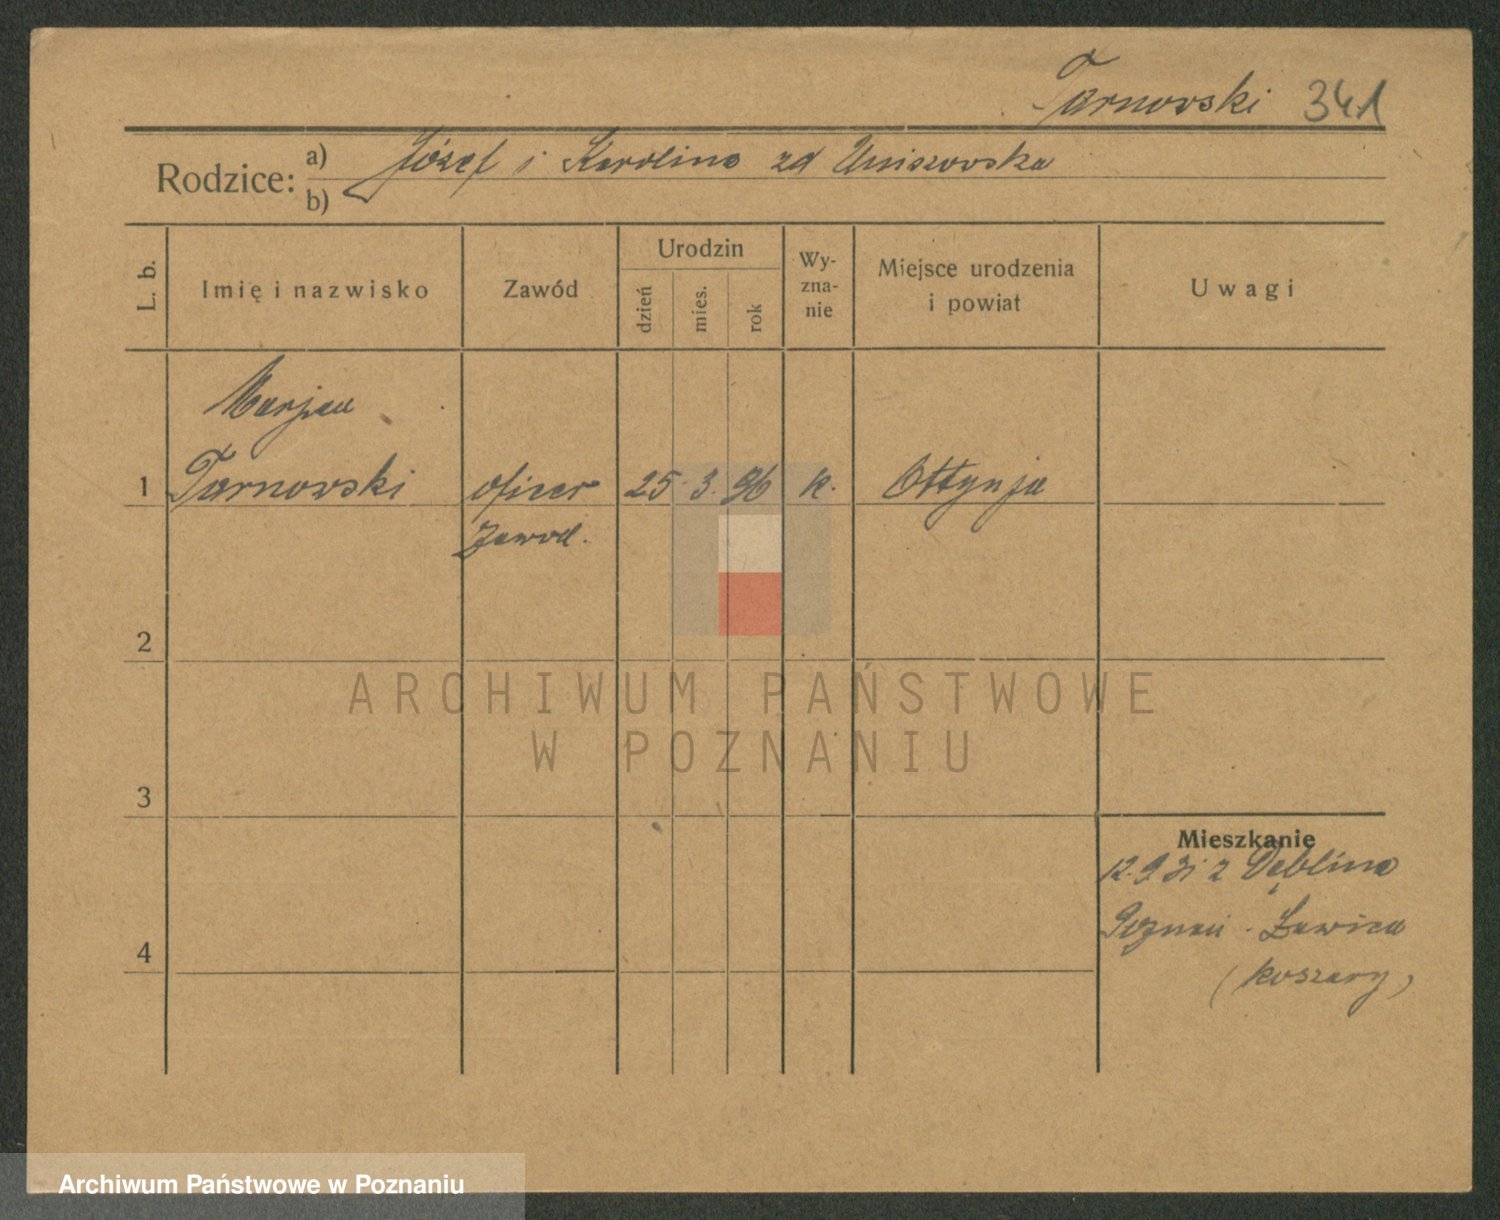 Tarnowski 341
Rodzice: a) Józef i Karolina zd Uniszowska
b)
L. b.
Imię i nazwisko
Zawód
Urodzin
dzień
mies.
rok
Wy-
zna-
nie
Miejsce urodzenia
i powiat
Uwagi
Marjan
1 Tarnowski oficer 25. 3. 96 k. Ottynja
zawod.
2
ARCHIWUM PAŃSTWOWE
W POZNANIU
3
Mieszkanie
12. 9 31 z Dęblina
Poznań - Ławica
4
(koszary)
Archiwum Państwowe w Poznaniu